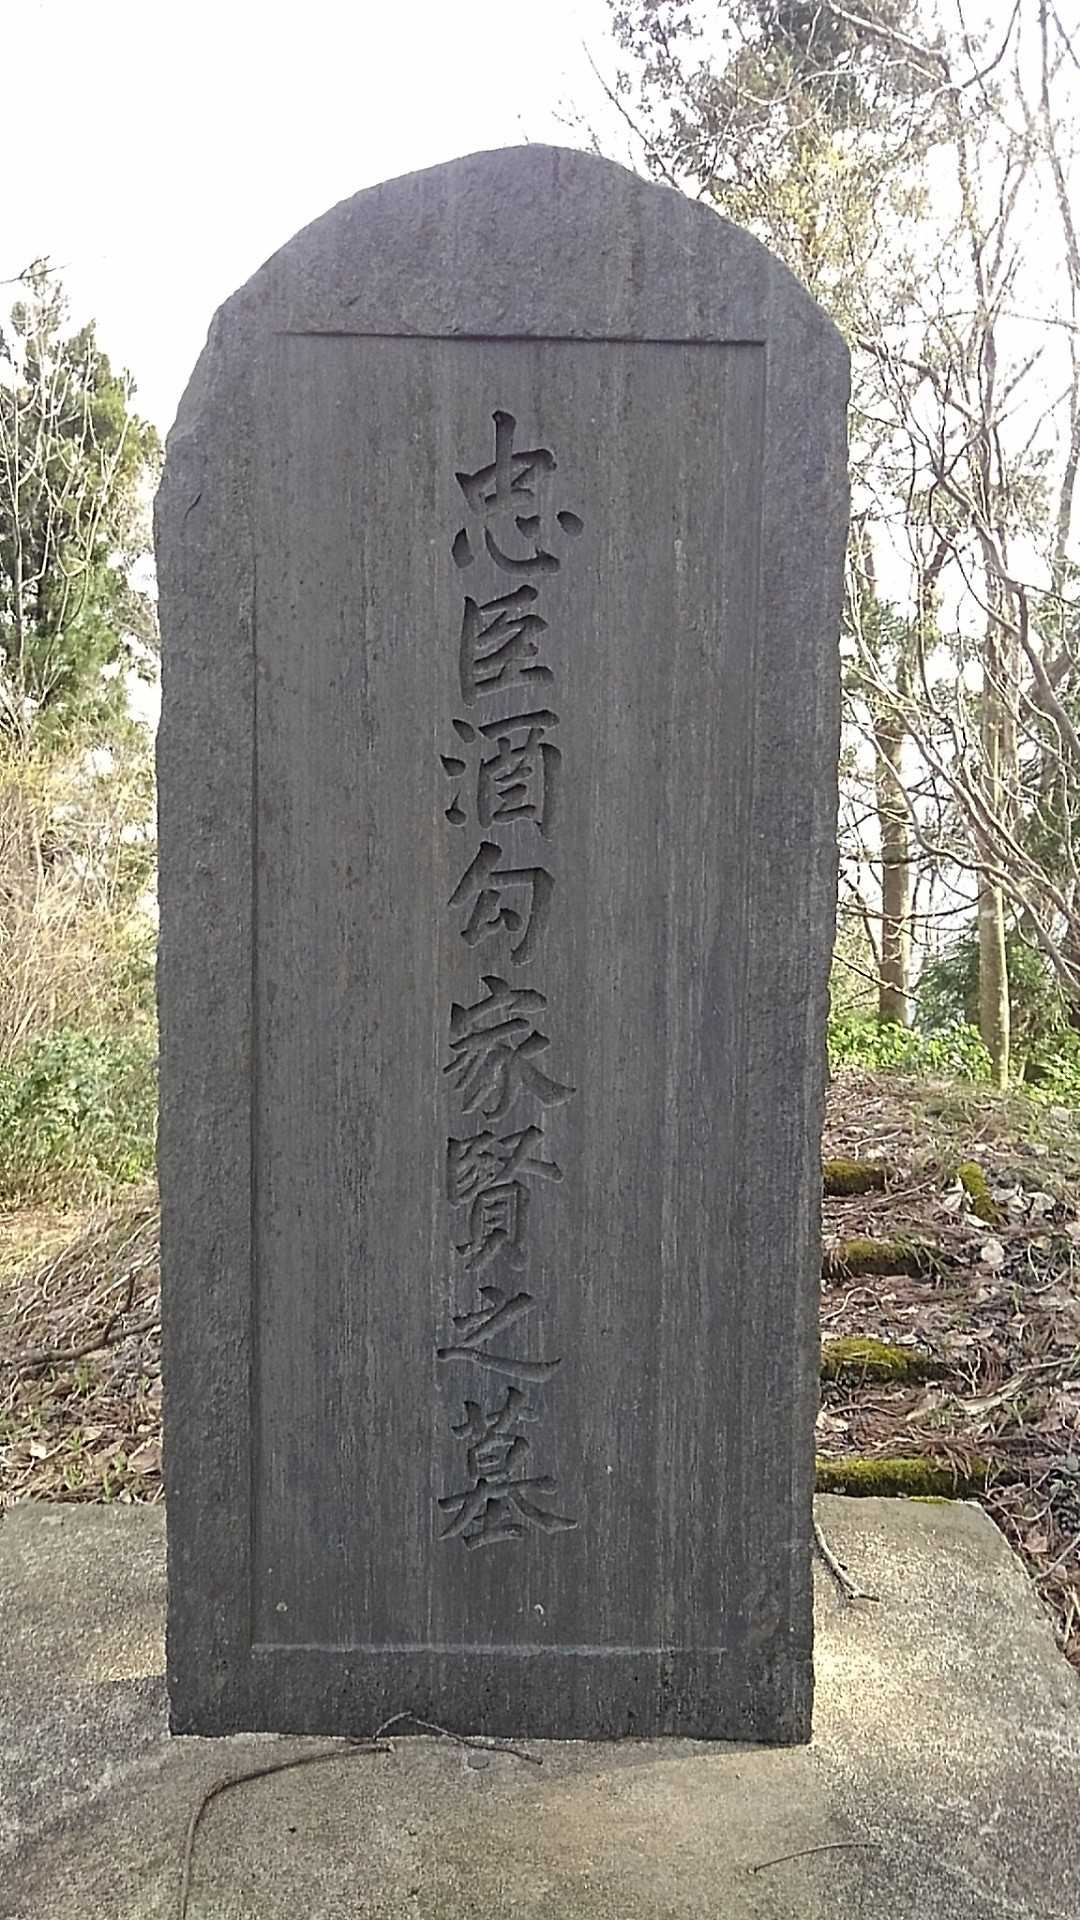 忠臣酒勾家賢之墓